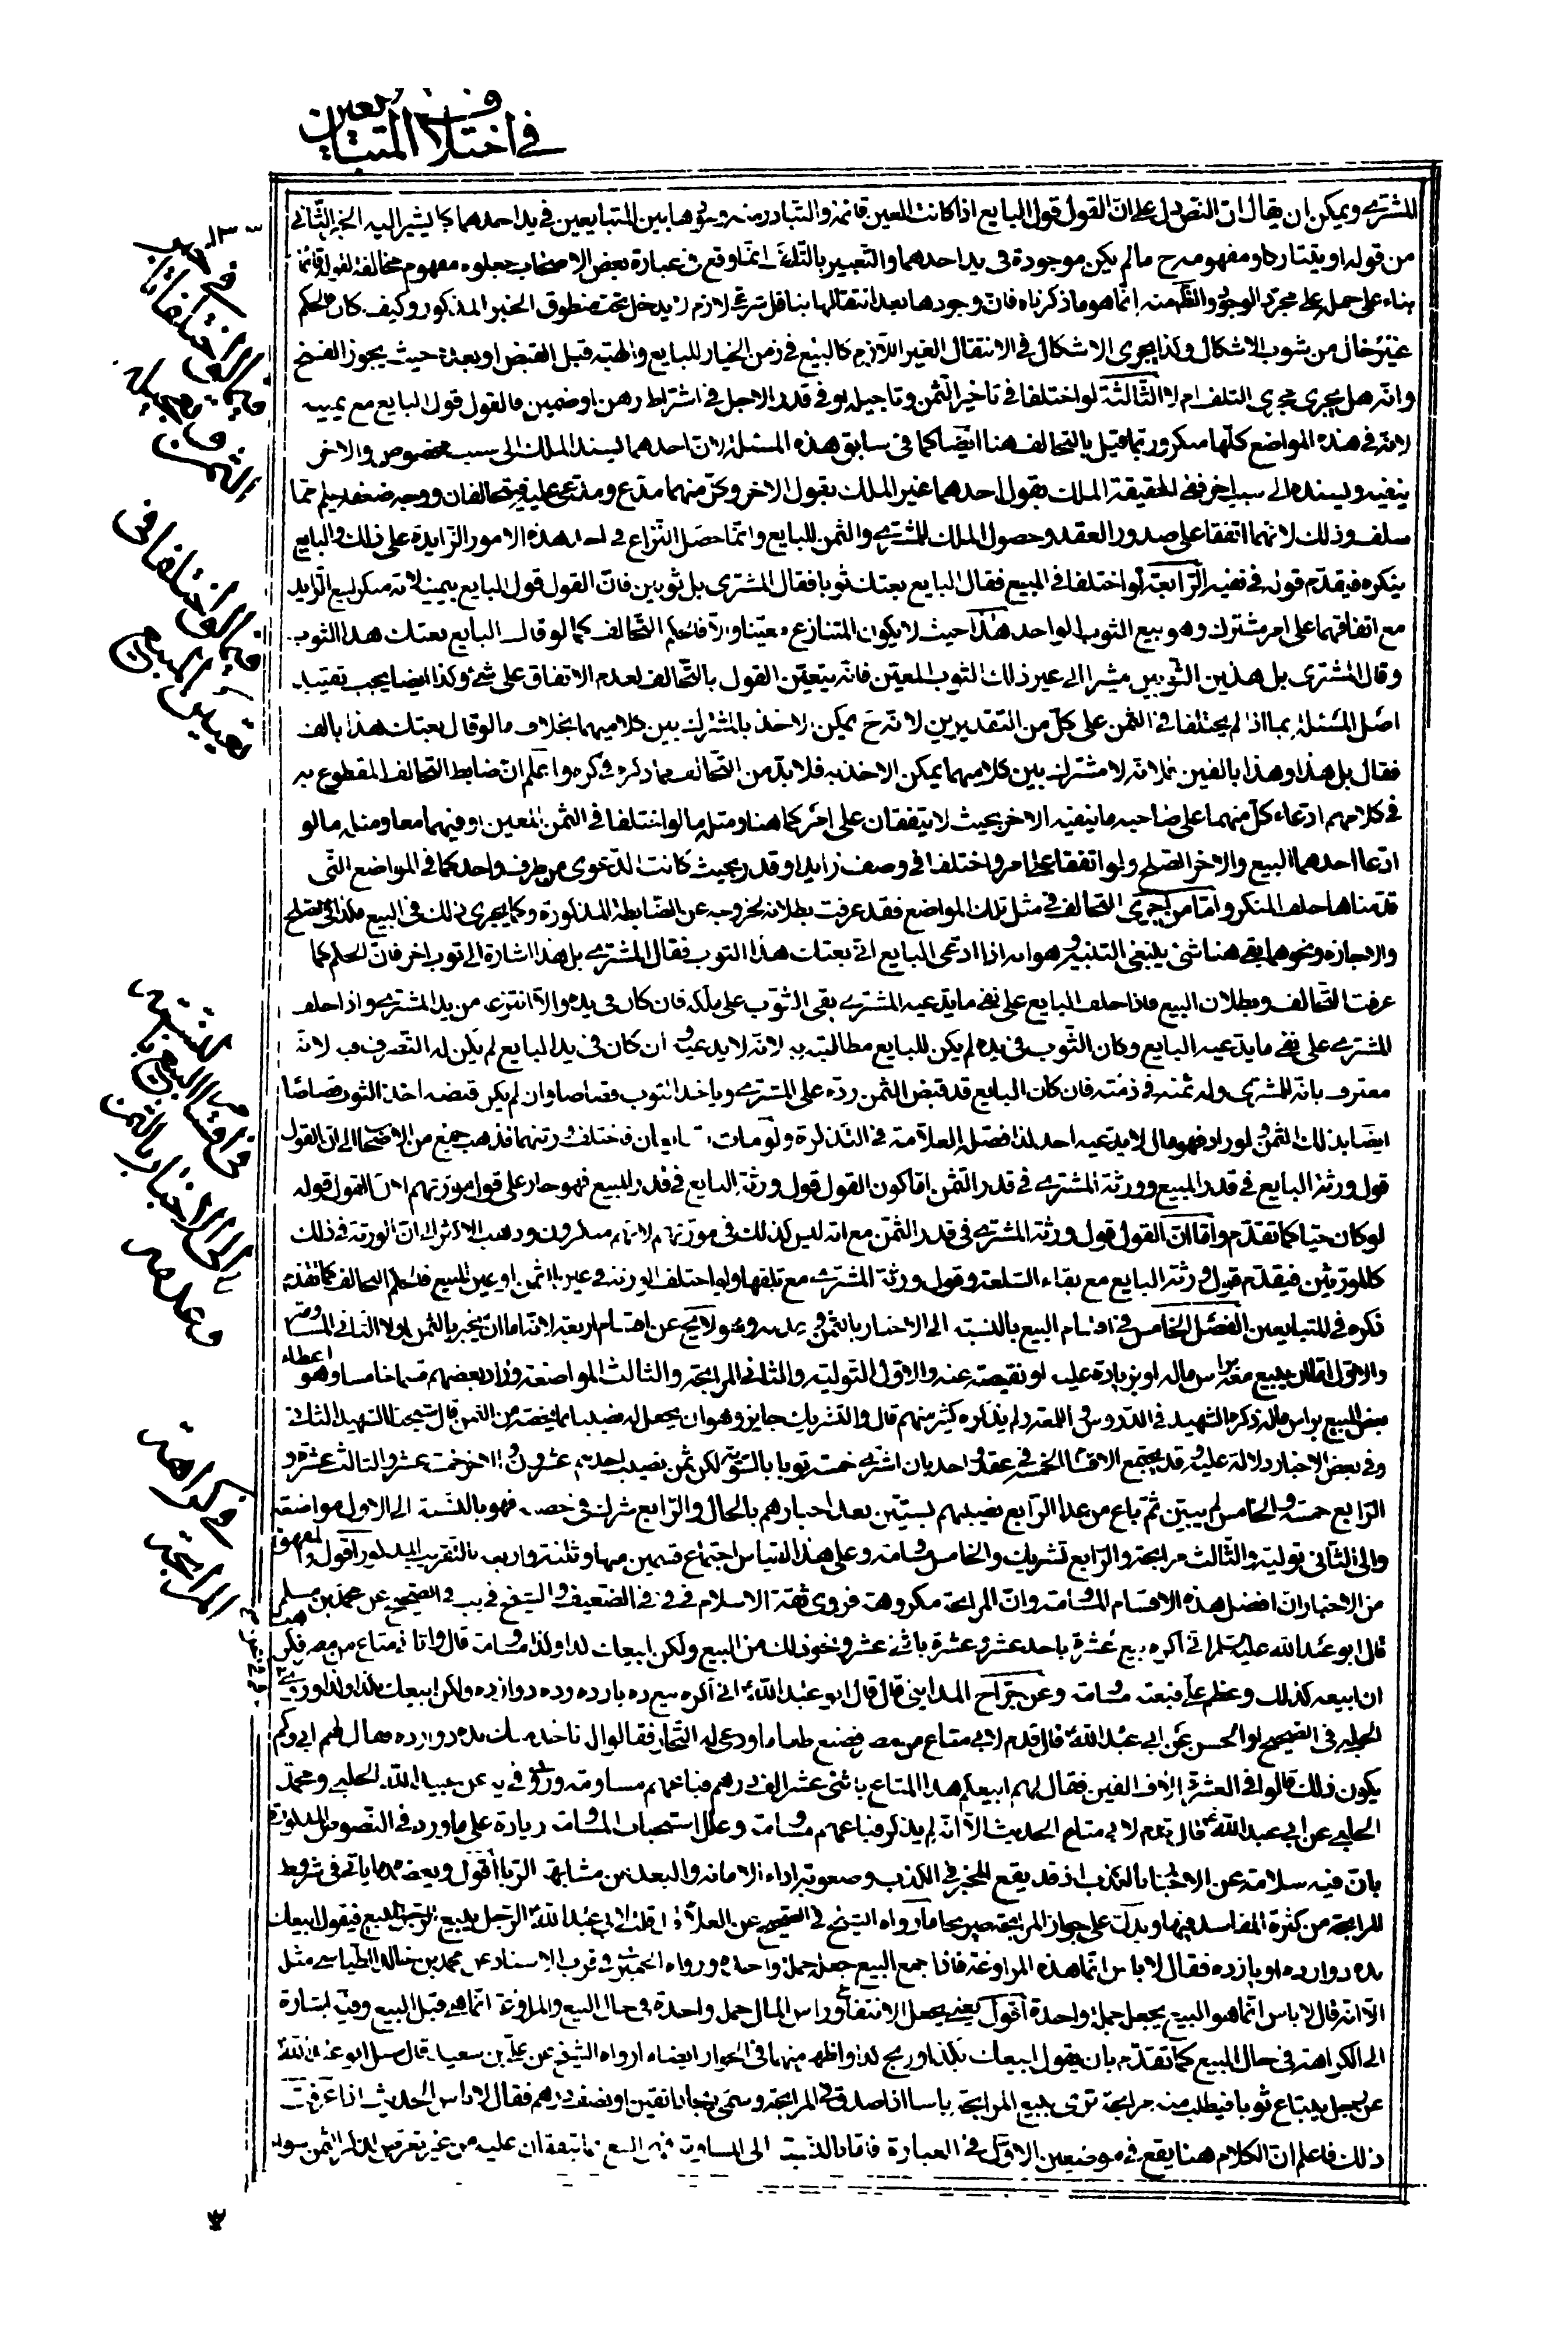 في اختلاف المتبايعين
للمشتري ويمكن ان يقال ان النص دل على ان القول قول البايع اذا كانت العين قائمة والمتبادر منه وجودها بين المتبايعين في يد احدهما كما يشير اليه الخبر الثاني
من قوله او يتتاركا ومفهومه ح ما لم يكن موجودة في يد احدهما والتعبير بالتلف انما وقع في عبارة بعض الاصحاب جعلوه مفهوم مخالفة لقوله قائما
بناء على حمله على مجرد الوجود والظ منه انما هو ما ذكرناه فان وجودها بعد انتقالها بناقل شرعي لازم لا يدخل تحت منطوق الخبر المذكور وكيف كان فالحكم
غير خال من شوب الاشكال وكذا يجري الاشكال في الانتقال الغير اللازم كالبيع في زمن الخيار للبايع والهبة قبل القبض او بعده حيث يجوز الفسخ
وانه هل يجري مجرى التلف ام لا الثالثة لو اختلفا في تاخير الثمن وتاجيله او في قدر الاجل في اشتراط رهن او ضمين فالقول قول البايع مع يمينه
لانه في هذه المواضع كلها منكر وربما قيل بالتحالف هنا ايضا كما في سابق هذه المسئلة لان احدهما يسند الملك الى سبب مخصوص والاخر
ينفيه ويسنده الى سبب اخر ففي الحقيقة الملك بقول احدهما غير الملك بقول الاخر وكل منهما مدع ومدعى عليه فيتحالفان ووجه ضعفه يعلم مما
سلف وذلك لانهما اتفقا على صدور العقد وحصول الملك للمشتري والثمن للبايع وانما حصل النزاع في احد هذه الامور الزايدة على ذلك والبايع
ينكره فيقدم قوله في نفيه الرابعة لو اختلفا في المبيع فقال البايع بعتك ثوبا فقال المشتري بل ثوبين فان القول قول البايع بيمينه لانه منكر لبيع الزايد
مع اتفاقهما على امر مشترك وهو بيع الثوب الواحد هذا حيث لا يكون المتنازع معينا والا فالحكم التحالف كما لو قال البايع بعتك هذا الثوب
وقال المشتري بل هذين الثوبين مشيرا الى غير ذلك الثوب المعين فانه يتعين القول بالتحالف لعدم الاتفاق على شئ وكذا ايضا يجب تقييد
اصل المسئلة بما اذا لم يختلفا في الثمن على كل من التقديرين لانه ح يمكن الاخذ بالمشترك بين كلاميهما بخلاف ما لو قال بعتك هذا بالف
فقال بل هذا وهذا بالفين لانه لا مشترك بين كلاميهما يمكن الاخذ به فلا بد من التحالف كما ذكره في كره واعلم ان ضابط التحالف المقطوع به
في كلامهم ادعاء كل منهما على صاحبه ما ينفيه الاخر بحيث لا يتفقان على امر كما هنا ومثله ما لو اختلفا في الثمن المعين او فيهما معا ومثله ما لو
ادعا احدهما البيع والاخر الصلح ولو اتفقا على امر واختلفا في وصف زايد او قدر بحيث كانت الدعوى من طرف واحد كما في المواضع التي
قدمناها حلف المنكر واما من اجرى التحالف في مثل تلك المواضع فقد عرفت بطلانه لخروجه عن الضابطة المذكورة وكما يجري ذلك في البيع فكذا في الصلح
والاجازه ونحوهما بقي هنا شئ ينبغي التنبيه وهو انه اذا ادعى البايع اني بعتك هذا الثوب فقال المشتري بل هذا اشارة الى ثوب اخر فان الحكم كما
عرفت التحالف وبطلان البيع فاذا حلف البايع على نفي ما يدعيه المشتري بقي الثوب على ملكه فان كان في يده والا انتزعه من يد المشتري واذا حلف
المشتري على نفي ما يدعيه البايع وكان الثوب في يده لم يكن للبايع مطالبته به لانه لا يدعيه وان كان في يد البايع لم يكن له التصرف فيه لانه
معترف بانه للمشتري وله ثمنه في ذمته فان كان البايع قد قبض الثمن رده على المشتري وياخذ الثوب قصاصا وان لم يكن قبضه اخذ الثوب قصاصا
ايضا بذلك الثمن ولو زاد فهو مال لا يدعيه احد لذا فصل العلامة في التذكرة ولو مات المتبايعان فاختلف ورثتهما فذهب جمع من الاصحاب الى ان القول
قول ورثة البايع في قدر المبيع وورثة المشتري في قدر الثمن اما كون القول قول ورثة البايع في قدر المبيع فهو جار على قول مورثهم لان القول قوله
لو كان حيا كما تقدم واما ان القول قول ورثة المشتري في قدر الثمن مع انه ليس كذلك في مورثهم لانهم منكرون وذهب الاكثر الى ان الورثة في ذلك
كالمورثين فيقدم قول ورثة البايع مع بقاء السلعة وقول ورثة المشتري مع تلفها ولو اختلف الورثة في عين الثمن او عين المبيع فالحكم التحالف كما تقدم
ذكره في المتبايعين الفصل الخامس في اقسام البيع بالنسبة الى الاخبار بالثمن وعدمه وهو لا يخ عن اقسام اربعة لانه اما ان يخبر بالثمن اولا الثاني المساومة
والاول اما ان يبيع معه براس ماله او بزيادة عليه او نقيصة عنه والاول التولية والثاني المرابحة والثالث المواضعة وزاد بعضهم قسما خامسا وهو اعطاء
بعض المبيع براس ماله ذكره الشهيد في الدروس واللمعة ولم يذكره كثير منهم قال والتشريك جايز وهو ان يجعل له نصيبا بما يخصه من الثمن قال شيخنا الشهيد الثاني
وفي بعض الاخبار دلالة عليه وقد يجتمع الاقسام الخمسة في عقد واحد بان اشترى خمسة ثوبا بالسوية لكن ثمن نصيب احدهم عشرون والاخر خمسة عشر والثالث عشرة و
الرابع خمسة والخامس لم يبين ثم باع من عدا الرابع نصيبهم بستين بعد اخبارهم بالحال والرابع شرك في حصته فهو بالنسبة الى الاول مواضعة
والى الثاني تولية والثالث مرابحة والرابع تشريك والخامس مساومة وعلى هذا القياس اجتماع قسمين منها وثلثة واربعة بالتقريب المذكور اقول والمفهوم
من الاخبار ان افضل هذه الاقسام المساومة وان المرابحة مكروهة فروى ثقة الاسلام في في في الضعيف والشيخ في يب في الصحيح عن محمد بن مسلم
قال ابو عبد الله عليه السلم اني اكره بيع عشرة باحد عشر وعشرة باثنى عشر ونحو ذلك من البيع ولكن ابيعك لذا وكذا مساومة قال واتاني متاع من مصر فكرهت
ان ابيعه كذلك وعظم علي فبعته مساومة وعن جراح المدايني قال قال ابو عبد الله ع اني اكره بيع ده يازده وده دوازده ولكن ابيعك بكذا وكذا وروى
الحلبي في الصحيح او الحسن عن ابي عبد الله ع قال قدم لابي متاع من مصر فصنع طعاما ودعى له التجار فقالوا انا ناخذه منك بده دوازده فقال لهم ابي وكم
يكون ذلك قالوا في العشرة الاف الفين فقال لهم ابيعكم هذا المتاع باثنى عشر الف درهم فباعهم مساومة وروى في يه عن عبيد الله الحلبي ومحمد
الحلبي عن ابي عبد الله ع قال قدم لابي متاع الحديث الا انه لم يذكر فباعهم مساومة وعلل استحباب المساومة زيادة على ما ورد في النصوص المذكورة
بان فيه سلامة عن الاخبار بالكذب اذ قد يقع المخبر في الكذب وصعوبة اداء الامانة والبعد من مشابهة الربا اقول ويعضده ما ياتي في شروط
المرابحة من كثرة المفاسد فيها ويدل على جواز المرابحة صريحا ما رواه الشيخ في الصحيح عن العلاء قال قلت لابي عبد الله ع الرجل يبيع الرجل البيع فيقول ابيعك
بده دوازده او يازده فقال لا باس انما هذه المراوغة فاذا جمع البيع جعله جملة واحدة ورواه الحميري في قرب الاسناد عن محمد بن خالد الطيالسي مثله
الا انه قال لا باس انما هو البيع يجعل جملة واحدة اقول يعني يجعل الانتفاع وراس المال جملة واحدة في حال البيع والمراوغة انما هي قبل البيع وفيه اشارة
الى الكراهة في حال البيع كما تقدم بان يقول ابيعك بكذا وربح كذا واظهر منهما في الجواز ايضا ما رواه الشيخ عن علي بن سعيد قال سئل ابو عبد الله ع
عن رجل يبتاع ثوبا فيطلب منه مرابحة ترى ببيع المرابحة باسا اذا صدق في المرابحة وسمى ربحا دانقين او نصف درهم فقال لا باس الحديث اذا عرفت
ذلك فاعلم ان الكلام هنا يقع في موضعين الاول في العبارة فاما بالنسبة الى المساومة من غير تعرض لذكر الثمن سواء
فيما لو اختلفا في تاخير الثمن وتعجيله
فيما لو اختلفا في تعيين المبيع
في اقسام البيع بالنسبة الى الاخبار بالثمن وعدمه
في كراهة المرابحة